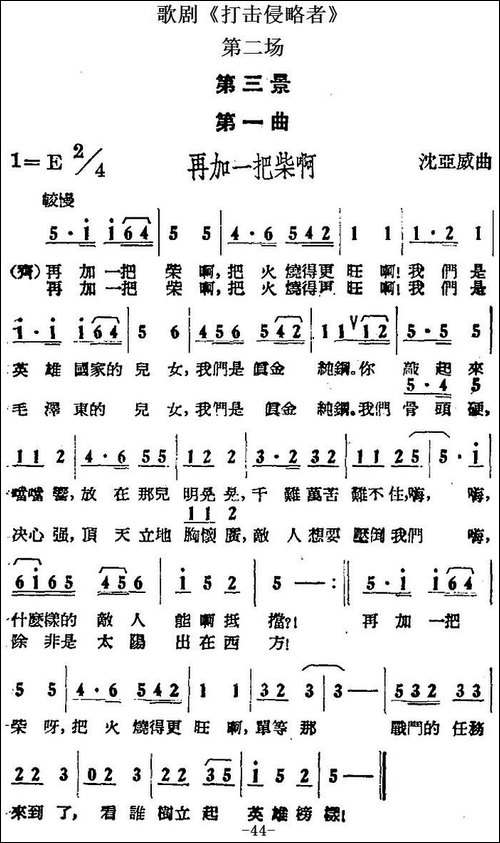 歌剧《打击侵略者》
第二场
第三景
第一曲
1=E 2/4 再加一把柴啊 沈亞威曲
較慢
5·i i64 | 5 5 | 4·6 542 | 1 1 | 1·2 1 |
(齊)再加一把 柴啊,把火燒得更旺啊!我們是
再加一把 柴啊,把火燒得更旺啊!我們是
i·i i64 | 5 6 | 456 542 | 11 V12 | 5·5 5 |
英雄國家的兒女,我們是真金純鋼。你敲起來
5·4 5
毛澤東的兒女,我們是真金純鋼。我們骨頭硬,
112 | 4·6 55 | 122 12 | 3·2 32 | 1125 | 5·i |
噹噹響,放在那兒明晃晃,千難萬苦難不住,嗨,嗨,
112
决心强,頂天立地胸懷廣,敵人想要壓倒我們嗨,
6i65 456 | i52 | 5 — :‖ 5·i i64 |
什麼樣的敵人能啊抵擋?!再加一把
除非是太陽出在西方!
5 5 | 4·6 542 | 1 1 | 32 3 | 3— | 532 33 |
柴呀,把火燒得更旺啊,單等那 戰鬥的任務
22 3 | 02 3 | 22 35 | i52 | 5— ‖
來到了,看誰樹立起英雄榜樣!
-44-